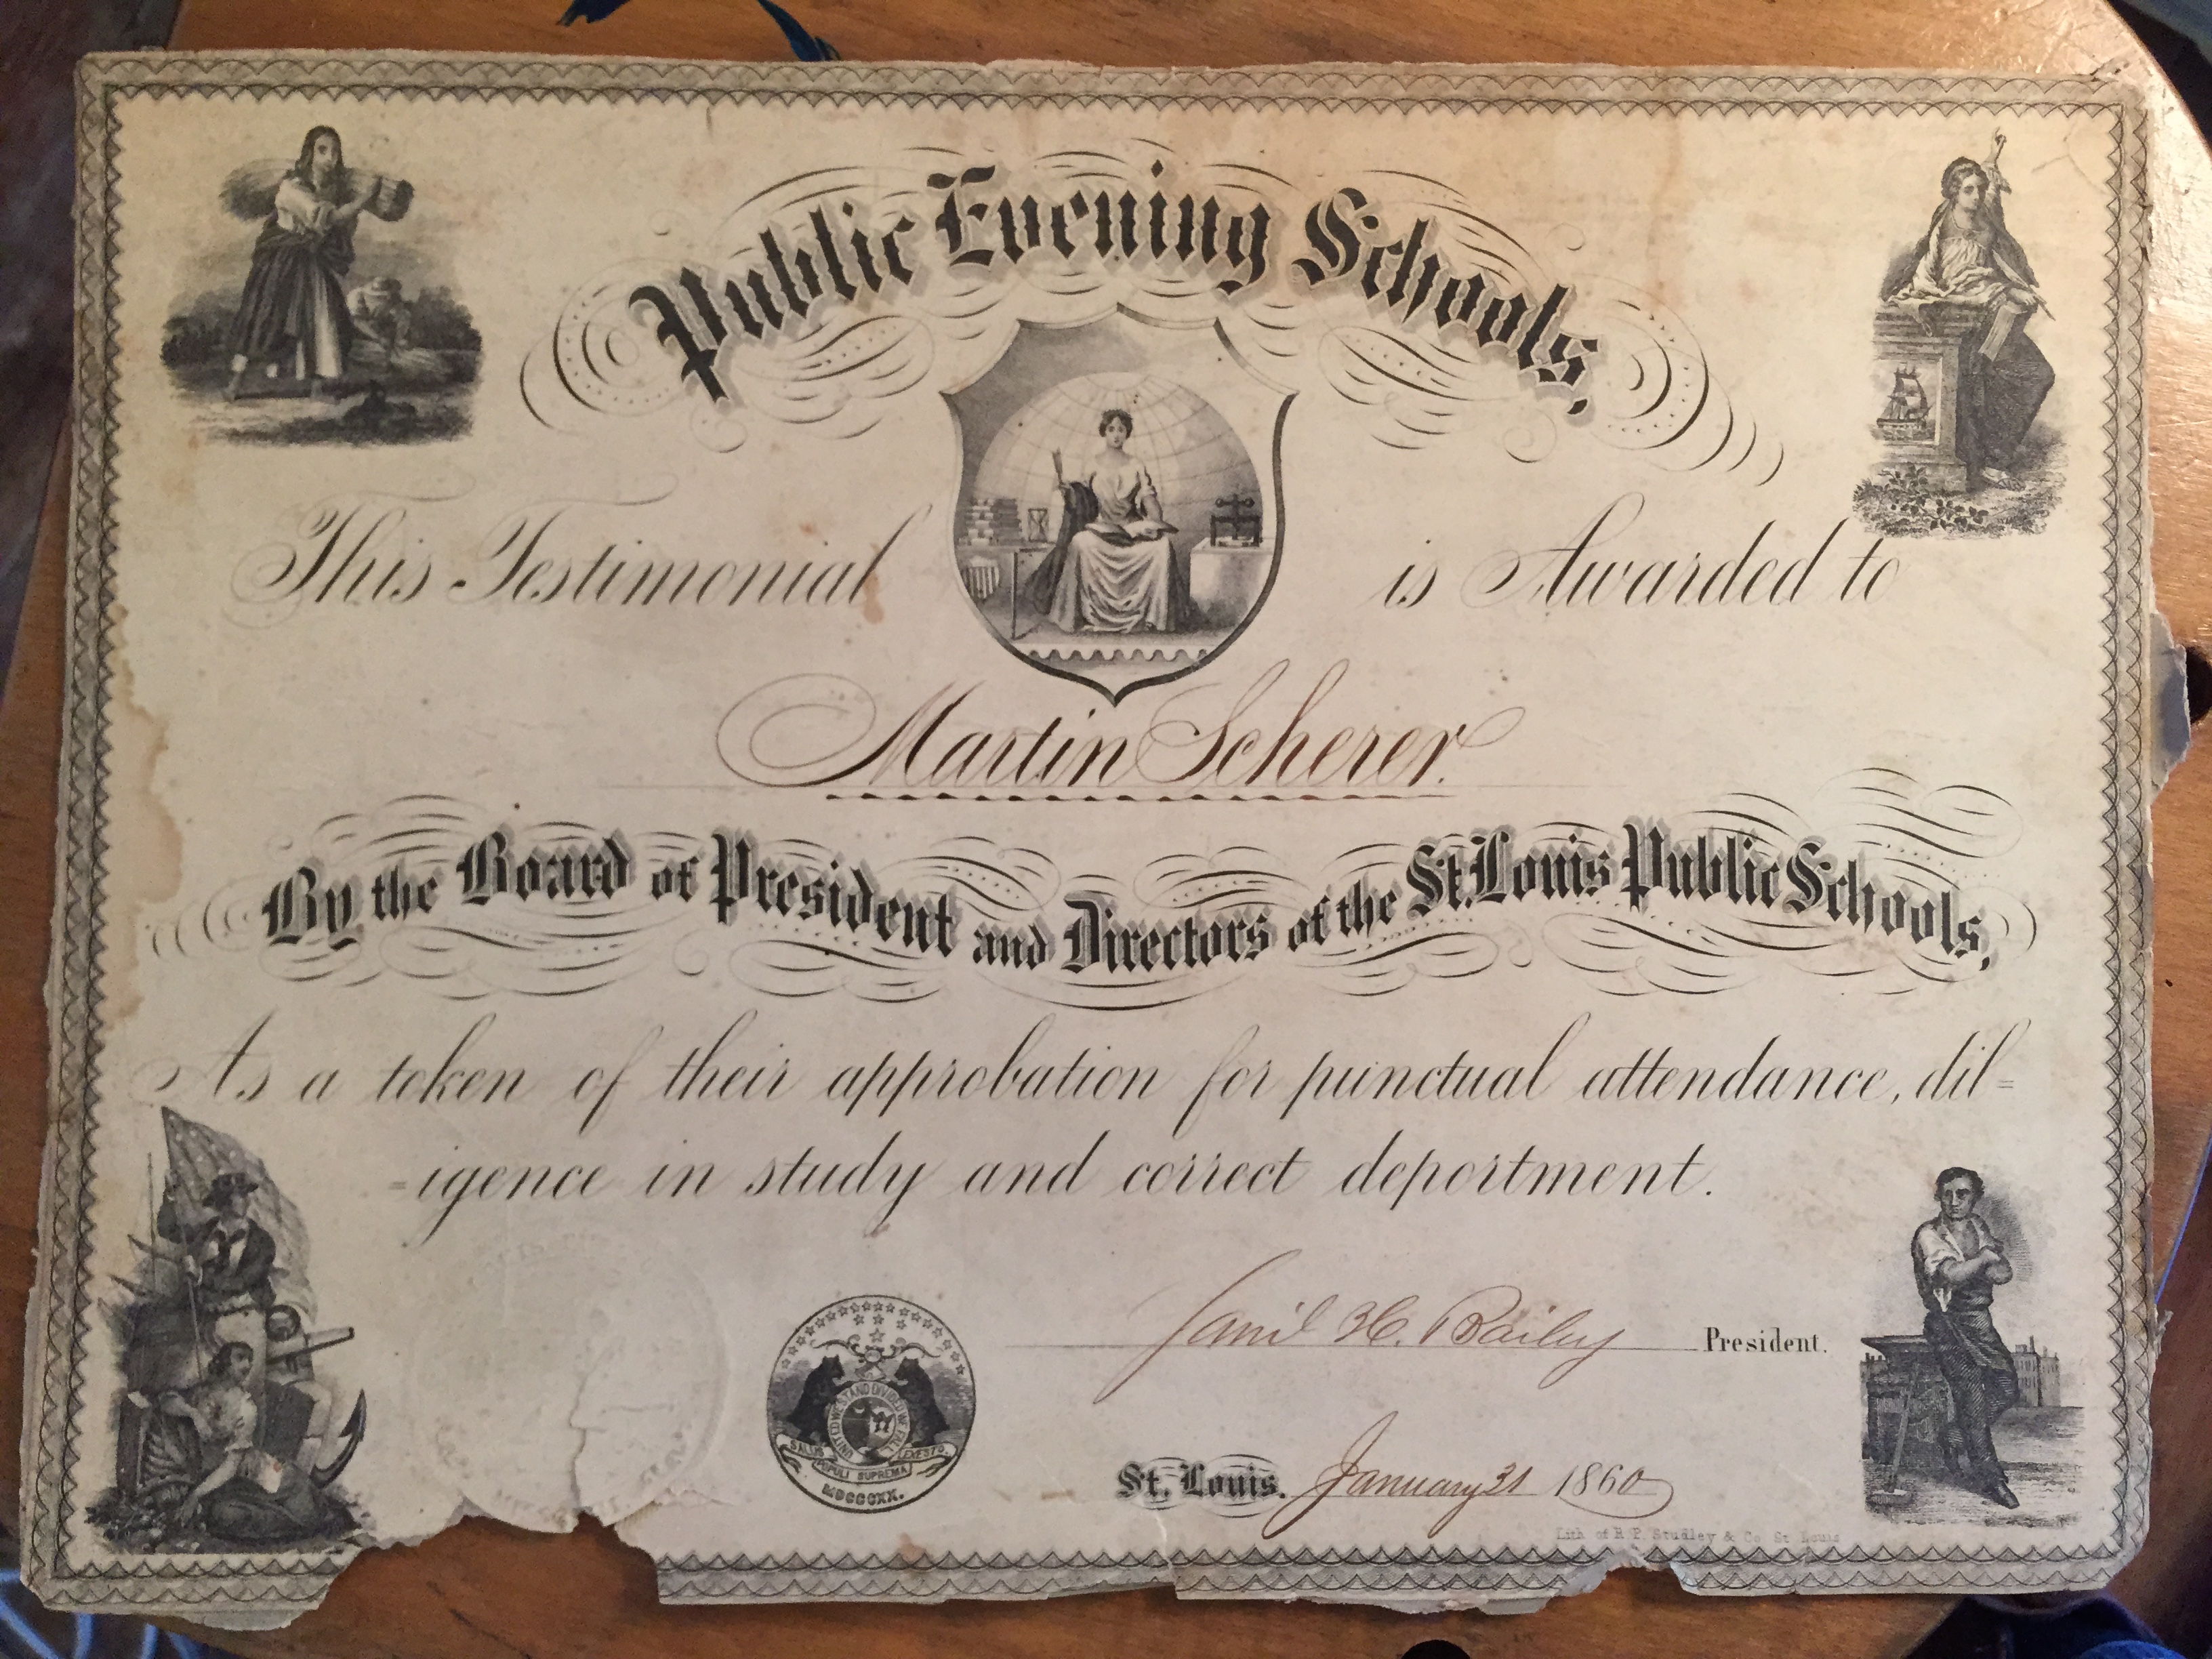 Public Evening Schools,
This Testimonial is Awarded to
Martin Scherer.
By the Board of President and Directors of the St. Louis Public Schools,
As a token of their approbation for punctual attendance, dil=
=igence in study and correct deportment.
H. Bailey President.
UNITED WE STAND DIVIDED WE FALL
SALUS POPULI SUPREMA LEX ESTO
MDCCCXX.
St. Louis. January 31 1860
Lith. of R. P. Studley & Co. St Louis